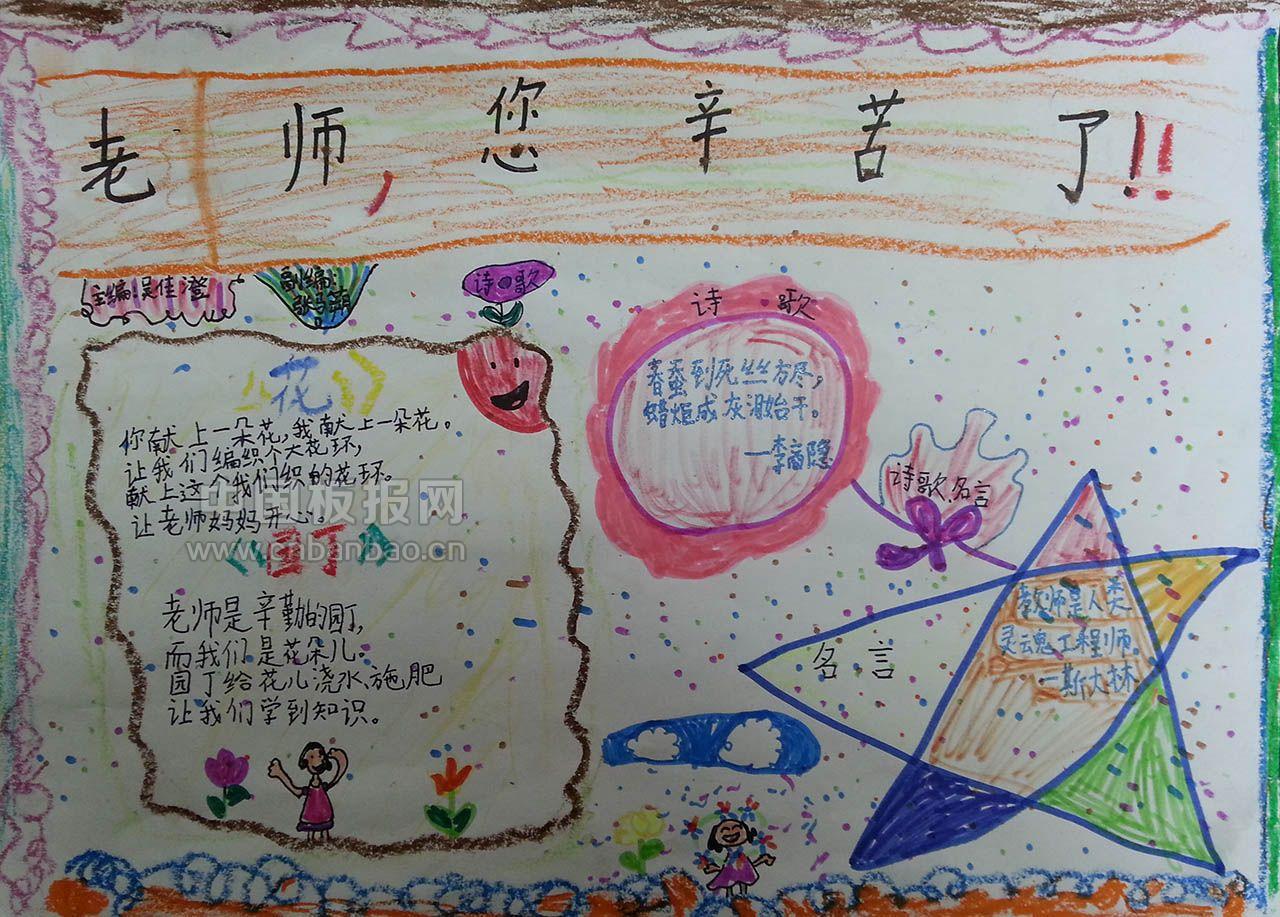 老师,您辛苦了!!
主编:吴佳澄
副编:
诗歌
《花》
你献上一朵花,我献上一朵花。
让我们编织个大花环,
献上这个我们织的花环。
让老师妈妈开心。
中国板报网
www.cabanbao.cn
《园丁》
老师是辛勤的园丁,
而我们是花朵儿。
园丁给花儿浇水、施肥
让我们学到知识。
诗 歌
春蚕到死丝方尽,
蜡炬成灰泪始干。
—李商隐
诗歌、名言
名言
教师是人类
灵云魂工程师。
—斯大林